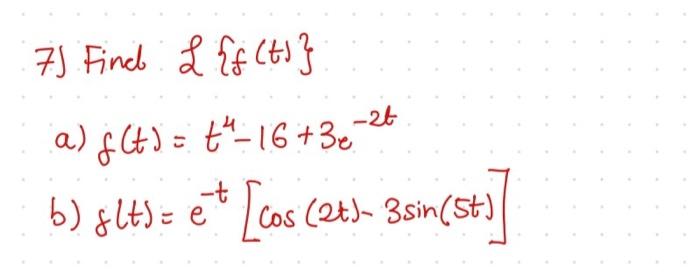 7) Find ℒ {f(t)}
a) f(t) = t⁴ - 16 + 3e⁻²ᵗ
b) f(t) = e⁻ᵗ [cos (2t) - 3sin(5t)]